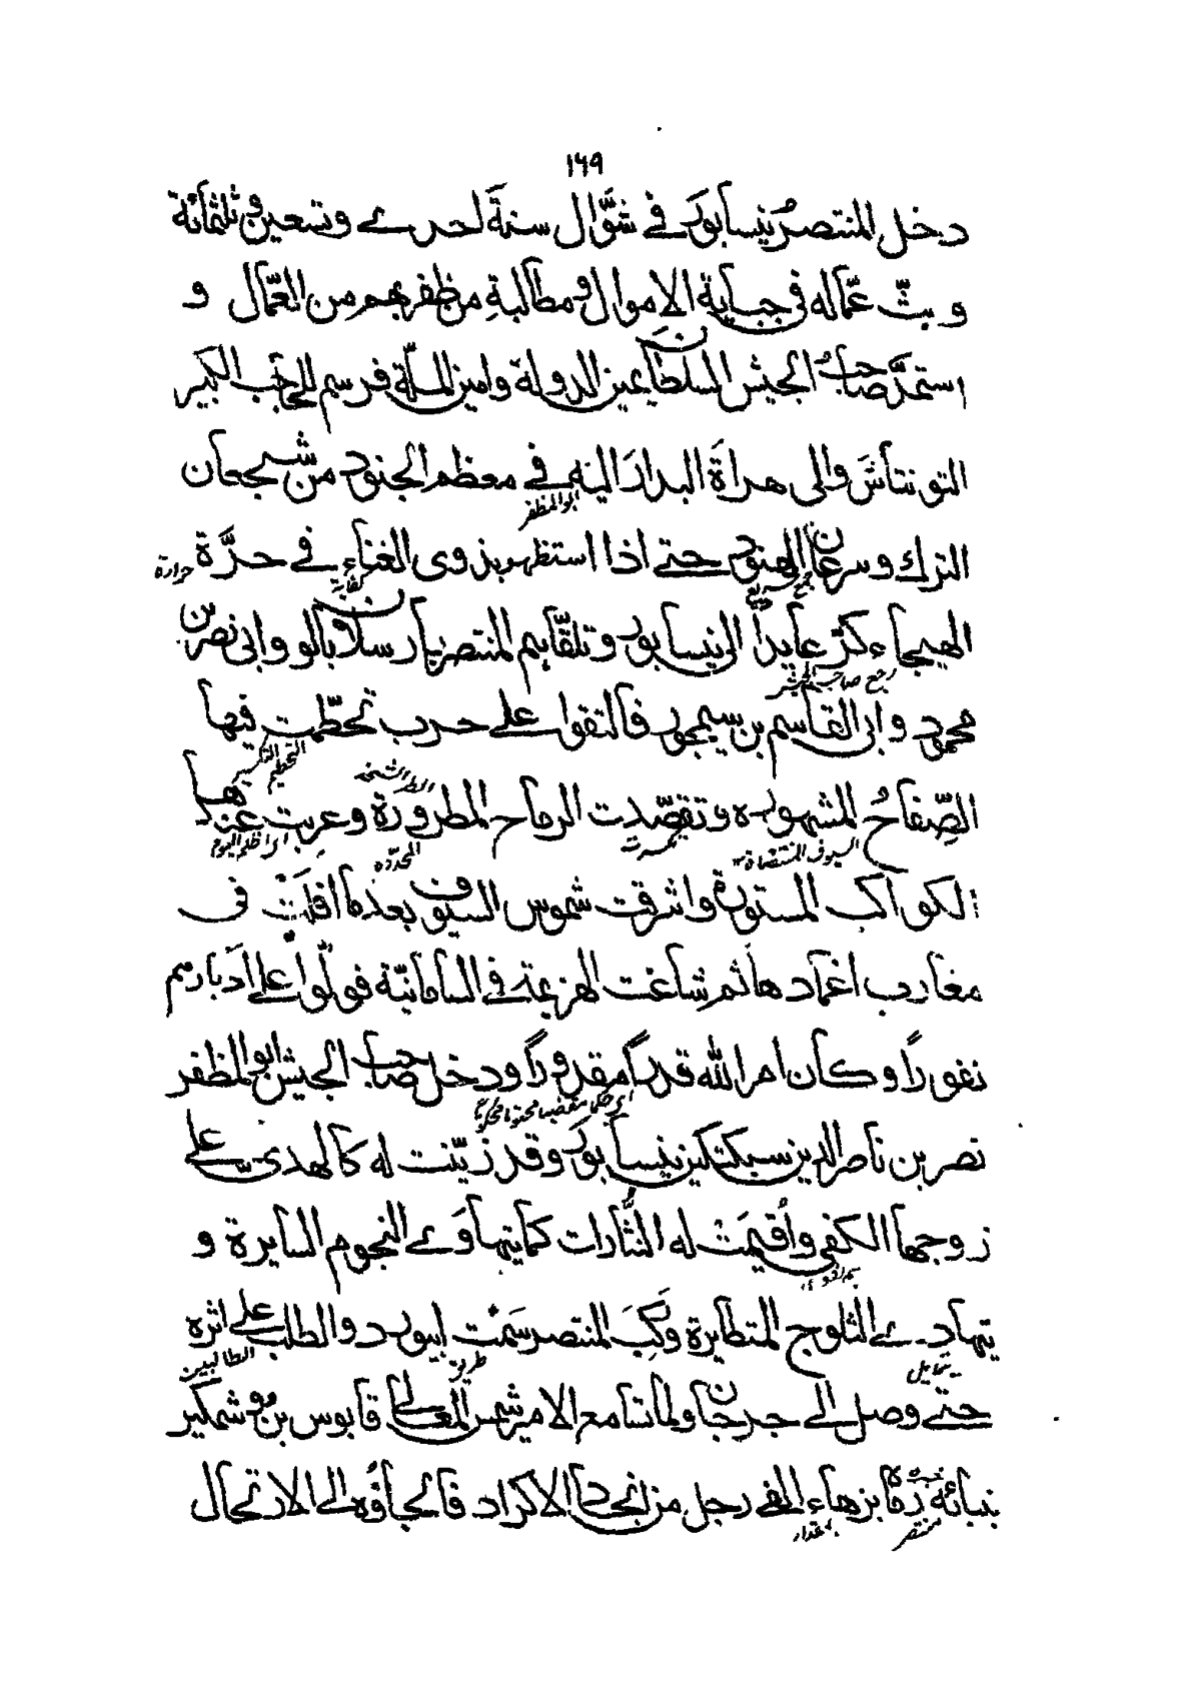 ١٦٩
دخل المنتصرُ نيسابورَ في شوَّال سنةَ احدى وتسعين وثلثمائة
وبثّ عمّاله في جباية الاموال ومطالبةِ من ظفر بهم من العُمّال و
استمدَّ صاحبُ الجيش السلطان يمين الدولة وامين الملّة فرسم للحاجب الكبير
التونتاشَ والى هراةَ البدارَ اليه في معظم الجنود من شجعان
ابو المظفر
الترك وسرعان الهنود حتى اذا استظهر بذوى الغناءِ في حرَّة
حرارة
كفاية
الهيجاء كرّ عايداً الى نيسابور وتلقّاهم المنتصر بارسلان بالو وابى نصر بن
رجع صاحب الجيش
محمود وابى القاسم بن سيمجور فالتقوا على حرب تحطّمت فيها
التحطيم التكسير
الصِّفاحُ المشهوره وتقصّدت الرماح المطرورة وعربت عندها
السيوف المنتضاة
المحدّده
الكواكب المستورة واشرقت شموس السيوف بعد ما افلتْ فى
مغارب اغمادها ثم شاعت الهزيمة في السامانيّة فولّوا على ادبارهم
نفوراً وكان امر الله قدراً مقدوراً ودخل صاحب الجيش ابو المظفر
نصر بن ناصر الدين سبكتكين نيسابورَ وقد زيّنت له كالهدى على
زوجها الكفى وأقيمَتْ له النثارات كما يتهاوَى النجوم السايرة و
يتهادى الثلوج المتطايرة وركِبَ المنتصر سَمْت ابيورد والطلب على اثره
يتمايل
طريق
الطالبين
حتى وصل الى جرجان ولما تسامع الامير شمس المعالى قابوس بن وشمكير
بنبائه رماه بزهاء الفى رجل من انجاد الاكراد فالجأؤه الى الارتحال
منتصر
بمقدار